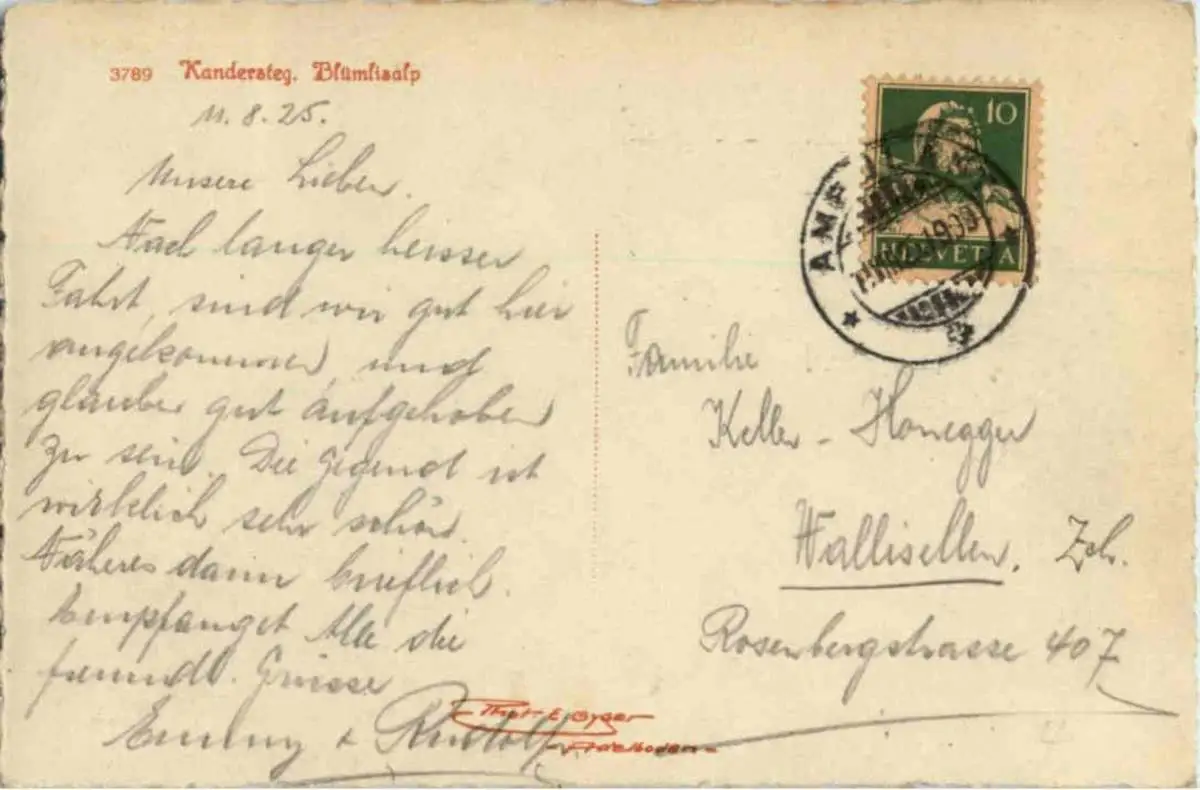 3789 Kandersteg. Blümlisalp
11. 8. 25.
Unsere Lieben.
Nach langer heisser
Fahrt, sind wir gut hier
angekommen, und
glauben gut aufgehoben
zu sein. Die Gegend ist
wirklich sehr schön.
Näheres dann brieflich.
Empfanget Alle die
freundl. Grüsse
Emmy & Rudolf
Phot. E. Gyger
Adelboden
10
HELVETIA
Familie
Keller - Honegger
Wallisellen, Zch.
Rosenbergstrasse 407